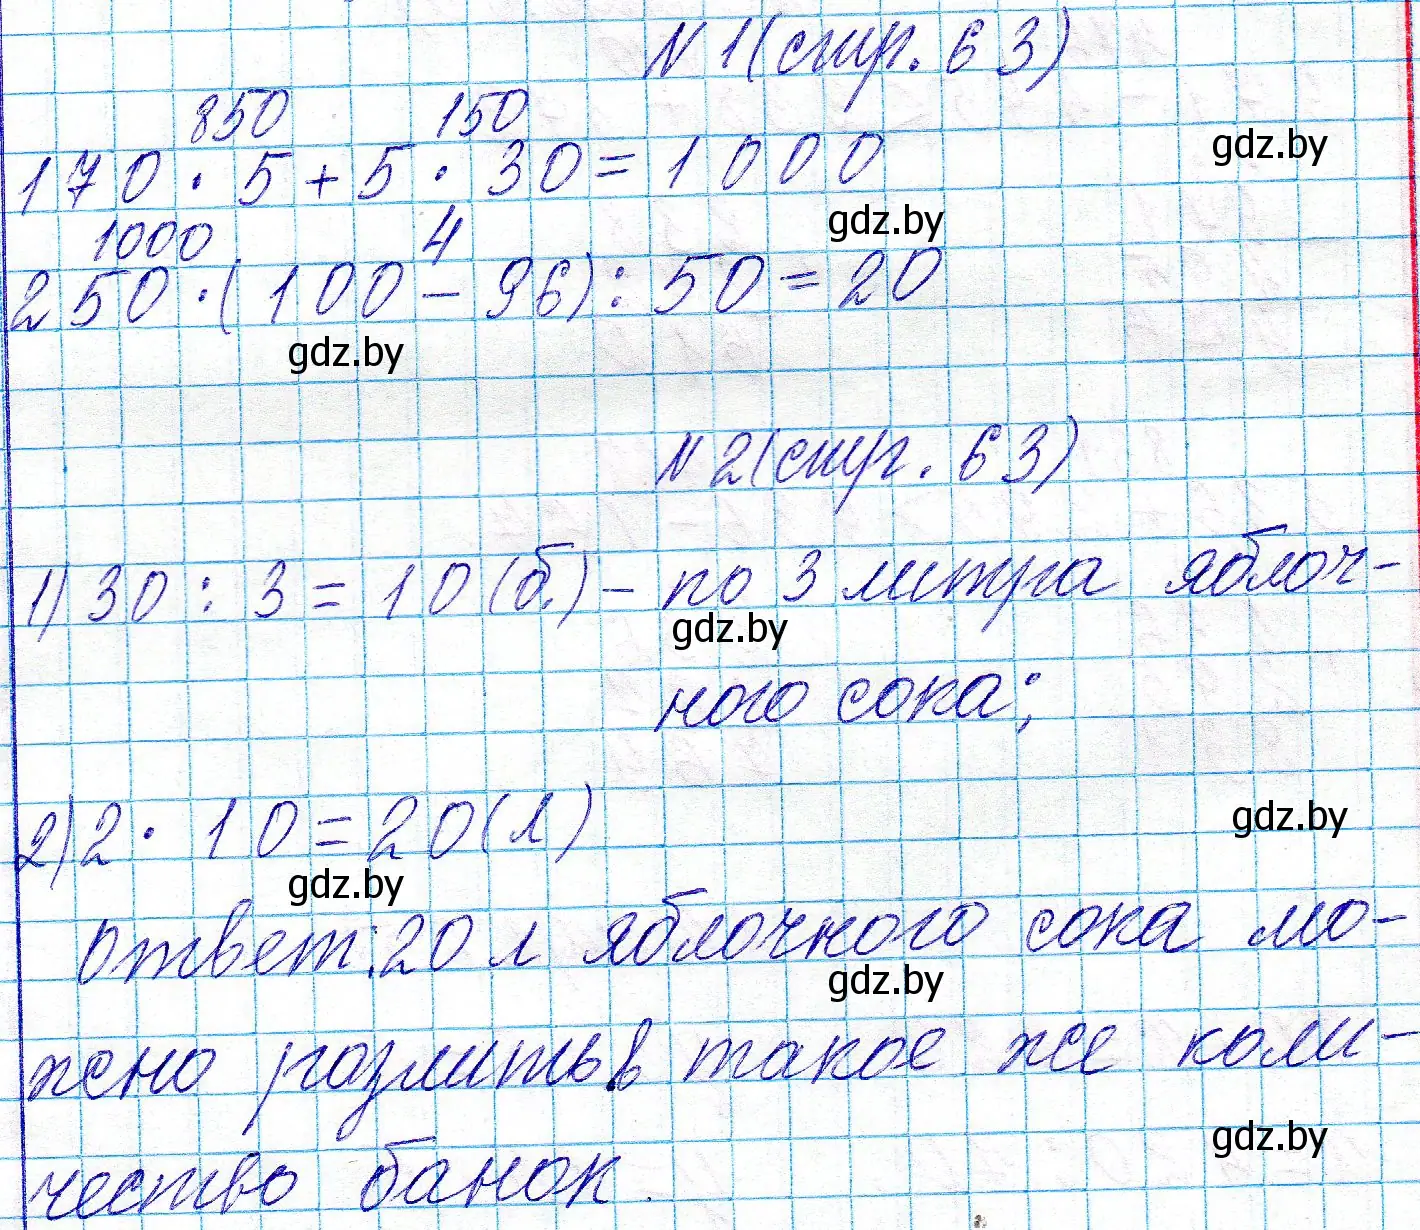 № 1 (стр. 63)
850 150
170 · 5 + 5 · 30 = 1000
gdz.by
gdz.by
1000 4
250 · (100 - 96) : 50 = 20
gdz.by
№ 2 (стр. 63)
1) 30 : 3 = 10 (б.) - по 3 литра яблоч-
gdz.by
ного сока;
2) 2 · 10 = 20 (л)
gdz.by
gdz.by
Ответ: 20 л яблочного сока мо-
gdz.by
жно разлить в такое же коли-
gdz.by
чество банок.